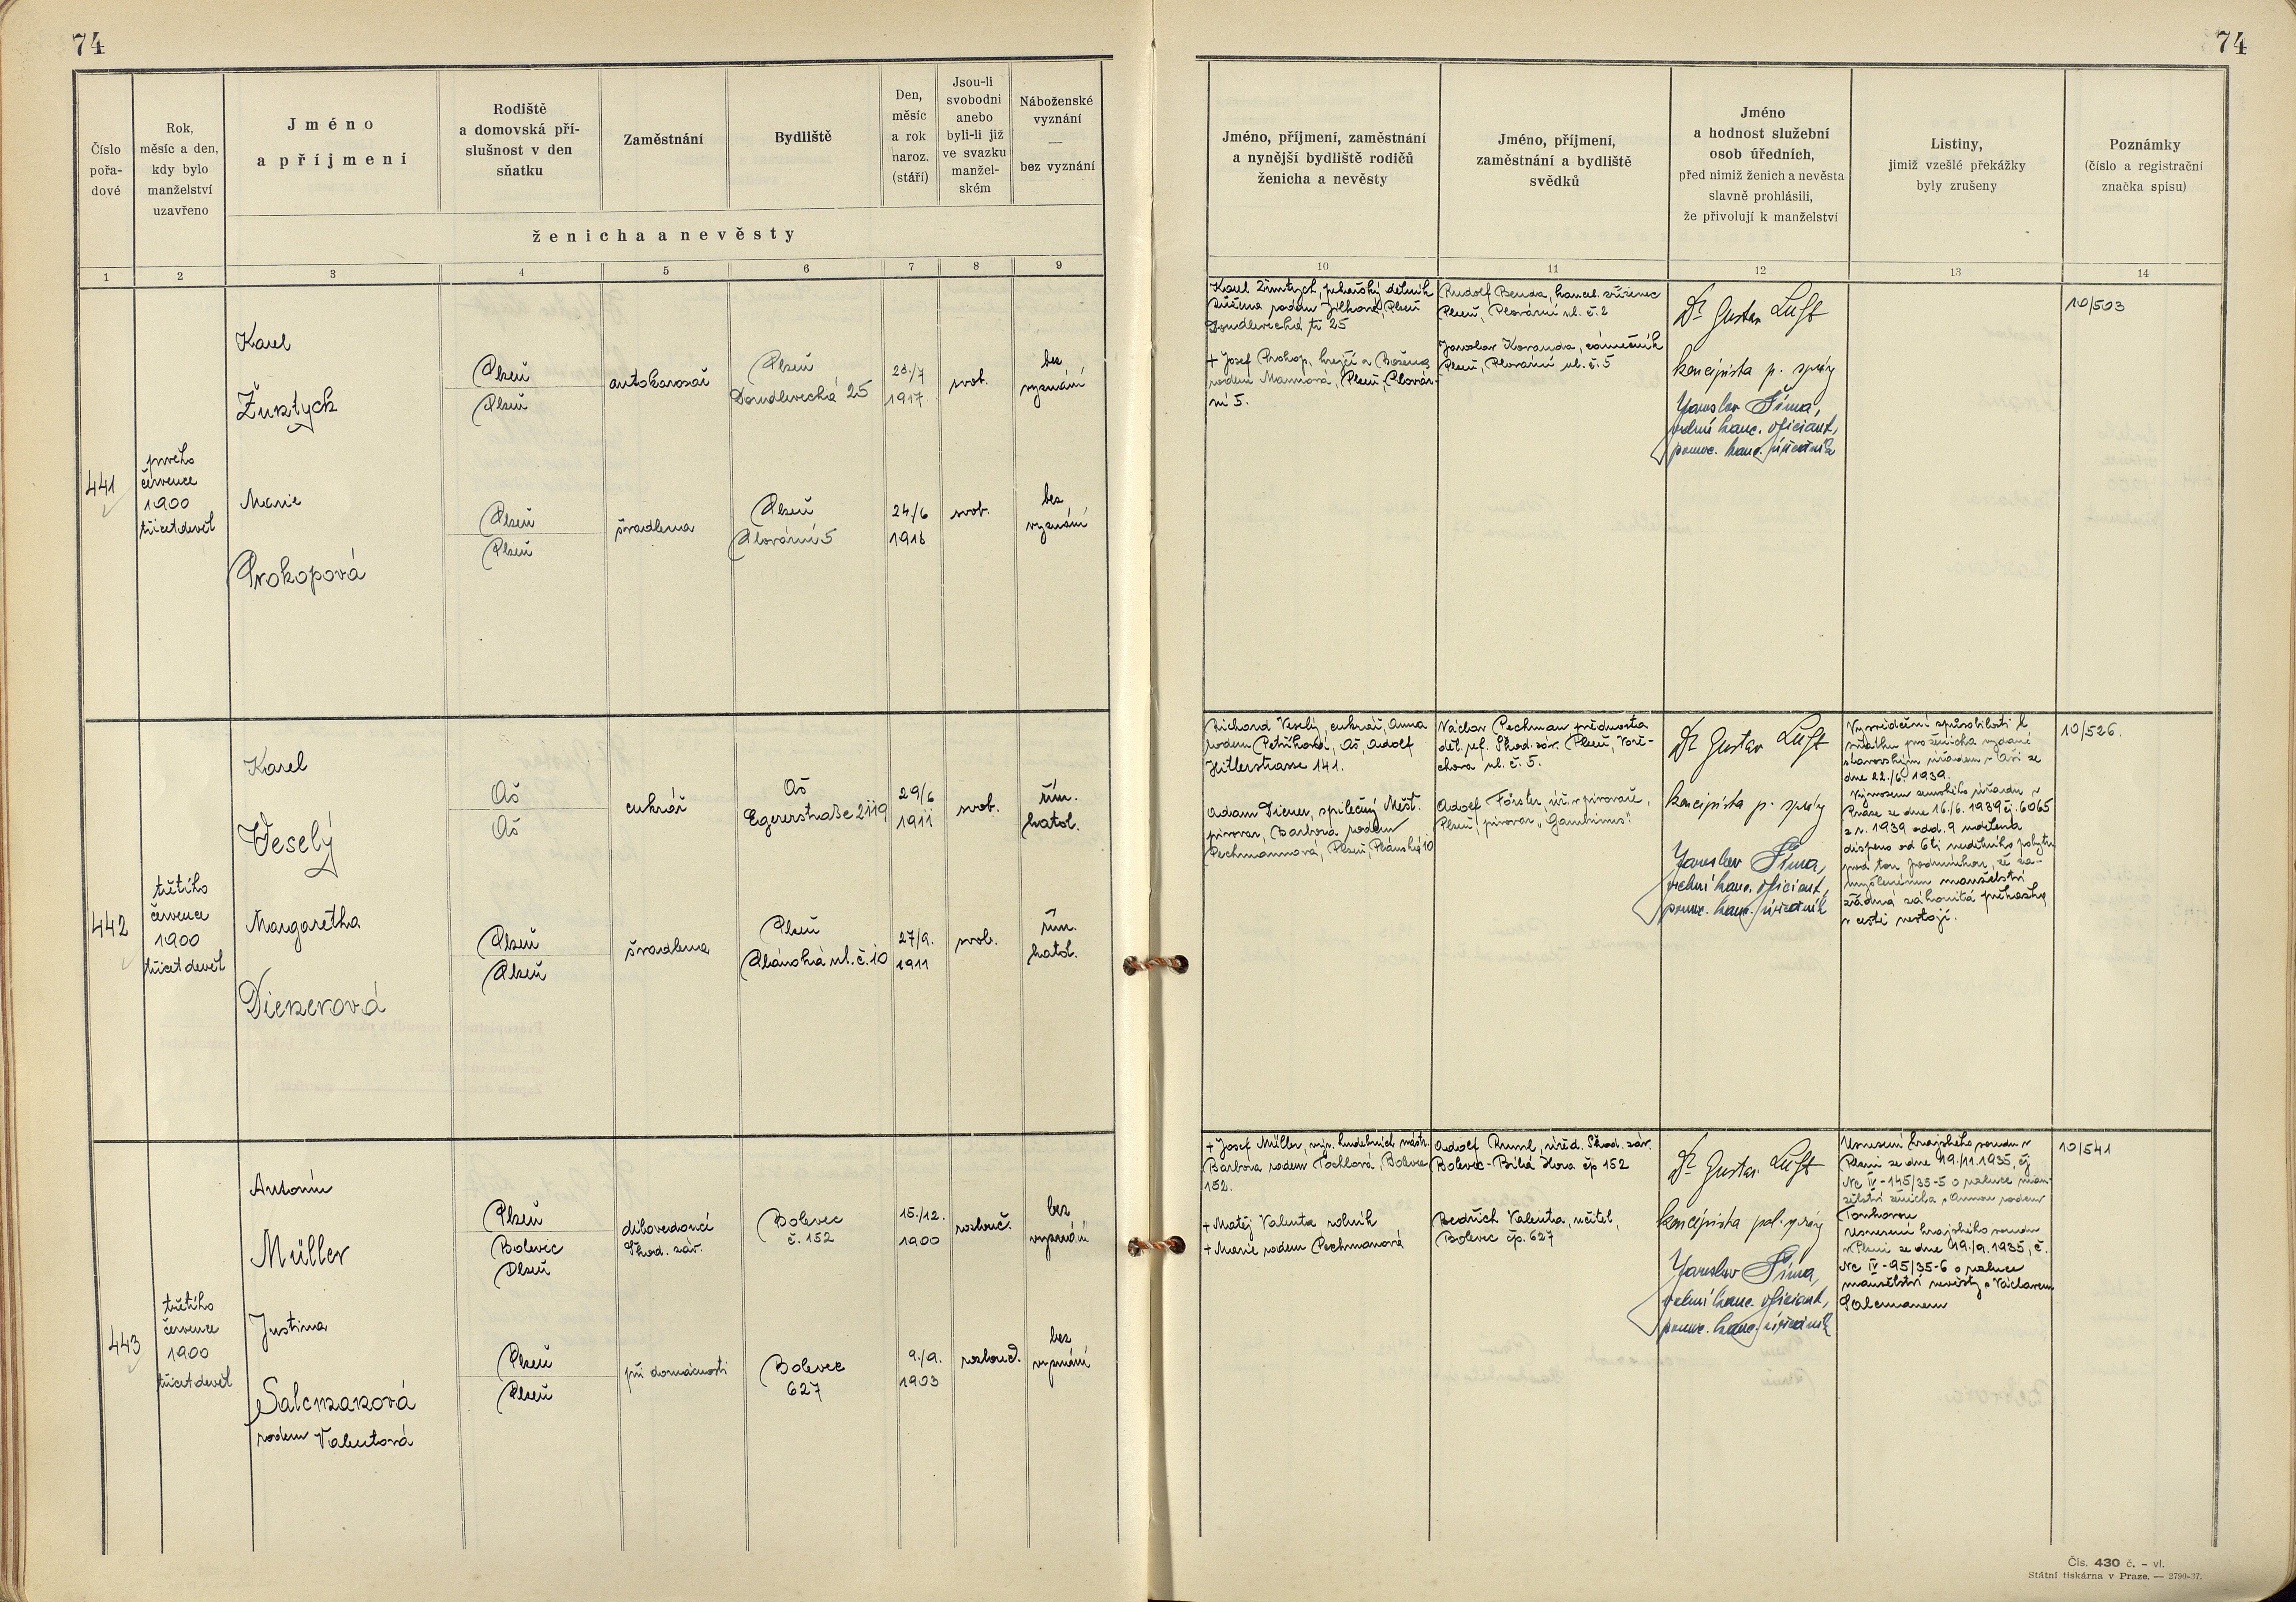 74
74
Číslo pořa- dové
Rok, měsíc a den, kdy bylo manželství uzavřeno
Jméno a příjmení
Rodiště a domovská pří- slušnost v den sňatku
Zaměstnání
Bydliště
Den, měsíc a rok naroz. (stáří)
Jsou-li svobodni anebo byli-li již ve svazku manžel- ském
Náboženské vyznání — bez vyznání
ženicha a nevěsty
Jméno, příjmení, zaměstnání a nynější bydliště rodičů ženicha a nevěsty
Jméno, příjmení, zaměstnání a bydliště svědků
Jméno a hodnost služební osob úředních, před nimiž ženich a nevěsta slavně prohlásili, že přivolují k manželství
Listiny, jimiž vzešlé překážky byly zrušeny
Poznámky (číslo a registrační značka spisu)
1 2 3 4 5 6 7 8 9 10 11 12 13 14
441
prvého
července
1900
třicetdevět
Karel
Plzeň
Plzeň
autokarosář
Plzeň
Doudlevecká 25
1917
svob.
bez
vyznání
Marie
Prokopová
Plzeň
Plzeň
švadlena
Plzeň
Plovární 5
24/6
svob.
bez
vyznání
rodem Jílková, Plzeň
Doudlevecká tř. 25
+ Josef Prokop, krejčí a Božena
rodem Mannová, Plzeň, Plovár-
ní 5.
Rudolf Benda, kancel. zřízenec
Plzeň, Plovární ul. č. 2
Jaroslav Koranda, zámečník
Plzeň, Plovární ul. č. 5
Dr Gustav Luft
koncipista p. správy
Jaroslav Šíma,
vrchní kanc. oficiant,
pomoc. kanc. úředník
10/503
442
třetího
července
1900
třicetdevět
Karel
Veselý
Aš
Aš
cukrář
Aš
Egererstraße 2119
29/6
1911
svob.
řím.
katol.
Margaretha
Dienerová
Plzeň
Plzeň
švadlena
Plzeň
Plánská ul. č. 10
27/9.
1911
svob.
řím.
katol.
Richard Veselý, cukrář, Anna
rodem Petříková, Aš, Adolf
Hitlerstrasse 141.
Adam Diener, spilečný Měšt.
pivovar, Barbora rodem
Pechmannová, Plzeň, Plánská 10
Václav Pechman přednosta
děl. ref. Škod. záv. Plzeň, Voři-
chova ul. č. 5.
Adolf Förster, úř. v pivovaře,
Plzeň, pivovar „Gambrinus".
Dr Gustav Luft
koncipista p. správy
Jaroslav Šíma,
vrchní kanc. oficiant,
pomoc. kanc. úředník
Vysvědčení způsobilosti k
sňatku pro ženicha vydané
starovským úřadem v Aši ze
dne 22./6. 1939.
Výnosem zemského úřadu v
Praze ze dne 16./6. 1939 čj. 6065
z r. 1939 odd. 9 udělena
dispens od 6ti nedělního pobytu
pod tou podmínkou, že za-
mýšlenému manželství
žádná zákonitá překážka
v cestě nestojí.
10/526.
443
třetího
července
1900
třicetdevět
Antonín
Müller
Plzeň
Bolevec
Plzeň
dílovedoucí
Škod. záv.
Bolevec
č. 152
15./12.
1900
rozlouč.
bez
vyznání
Justina
Salcmanová
rodem Valentová
Plzeň
Plzeň
při domácnosti
Bolevec
627
9./9.
1903
rozlouč.
bez
vyznání
+ Josef Müller, výr. hudebních nástr.
Barbora rodem Tochlová, Bolevec
152.
+ Matěj Valenta rolník
+ Marie rodem Pechmanová
Adolf Ruml, úřed. Škod. záv.
Bolevec - Bílá Hora čp 152
Bedřich Valenta, učitel,
Bolevec čp. 627
Dr Gustav Luft
koncipista pol. správy
Jaroslav Šíma,
vrchní kanc. oficiant,
pomoc. kanc. úředník
Usnesení krajského soudu v
Plzni ze dne 19./11. 1935, čj
Nc IV - 145/35-5 o rozluce man-
želství ženicha s Annou rodem
Usnesení krajského soudu
v Plzni ze dne 19./9. 1935, č.
Nc IV - 95/35-6 o rozluce
manželství nevěsty s Václavem
Salcmanem
10/541
Čís. 430 č. - vl.
Státní tiskárna v Praze. — 2790-37.